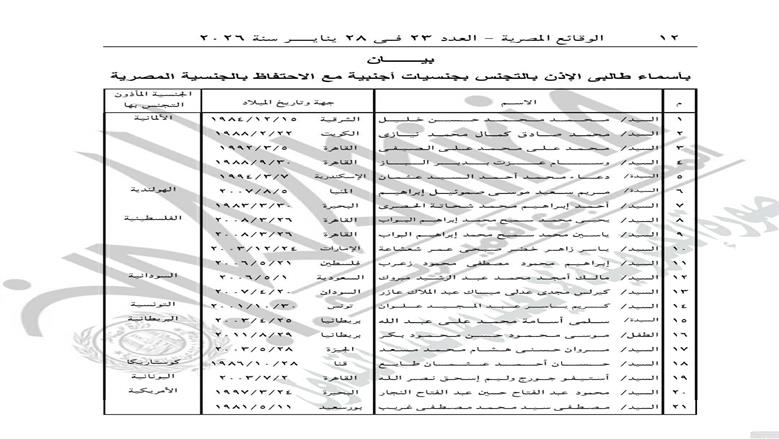 ١٢ الوقائع المصرية – العدد ٢٣ فى ٢٨ يناير سنة ٢٠٢٦
بيـــان
بأسماء طالبى الإذن بالتجنس بجنسيات أجنبية مع الاحتفاظ بالجنسية المصرية
م الاســـم جهة وتاريخ الميلاد الجنسية المأذون التجنس بها
١ السيد/ محمد حسن خليل الشرقية ١٩٨٤/١٢/١٥ الألمانية
٢ السيد/ محمد صادق كمال محمد نيازى الكويت ١٩٨٨/٢/٢٢
٣ السيد/ محمد على محمد على الصيفى القاهرة ١٩٩٢/٣/٥
٤ السيد/ عزت بدير الباز القاهرة ١٩٨٨/٩/٣٠
٥ السيدة/ دعاء محمد أحمد السيد عثمان الإسكندرية ١٩٩٤/٣/٧
٦ السيدة/ مريم سعيد موسى صموئيل إبراهيم المنيا ٢٠٠٧/٨/٥ الهولندية
٧ السيد/ أحمد إبراهيم محمد شحاتة الحصرى البحيرة ١٩٨٣/٣/٣٠
٨ السيد/ يحيى محمد سميح محمد إبراهيم البواب القاهرة ٢٠٠٨/٣/٢٦ الفلسطينية
٩ السيد/ ياسين محمد سميح محمد إبراهيم البواب القاهرة ٢٠٠٨/٣/٢٦
١٠ السيد/ ياسر زاهر خضر عمر شعشاعة الإمارات ٢٠٠٣/١٢/٢٤
١١ السيد/ إبراهيم محمود مصطفى محمود زعرب فلسطين ٢٠٠٦/٥/٢١
١٢ السيد/ مالك أمجد محمد عبد الرشيد مبروك السعودية ٢٠٠٦/٥/١ السودانية
١٣ السيد/ كيرلس مجدى عدلى ميلاك عبد الملاك عازر السودان ٢٠٠٧/٤/٢٠
١٤ السيد/ كريم ياسر عبد المجد علوان تونس ٢٠٠١/١٠/٣٠ التونسية
١٥ السيدة/ سلمى أسامة محمد على عبد الله بريطانيا ٢٠٠٣/٤/٢٥ البريطانية
١٦ الطفل/ موسى محمود حسن محمود بكر بريطانيا ٢٠١١/٨/٢٩
١٧ السيد/ مروان حسنى هشام محمد سعد الجيزة ٢٠٠٣/٥/٢٨
١٨ السيد/ حسان أحمد عثمان طايع قنا ١٩٨٦/١٠/٢٨ كوستاريكا
١٩ السيد/ أستيفو جورج وليم إسحق نصر الله القاهرة ٢٠٠٣/٧/٢ اليونانية
٢٠ السيد/ محمود عبد الفتاح حسين عبد الفتاح النجار البحيرة ١٩٩٧/٣/٢٤ الأمريكية
٢١ السيد/ مصطفى سيد محمد مصطفى غريب بورسعيد ١٩٨١/٥/١١